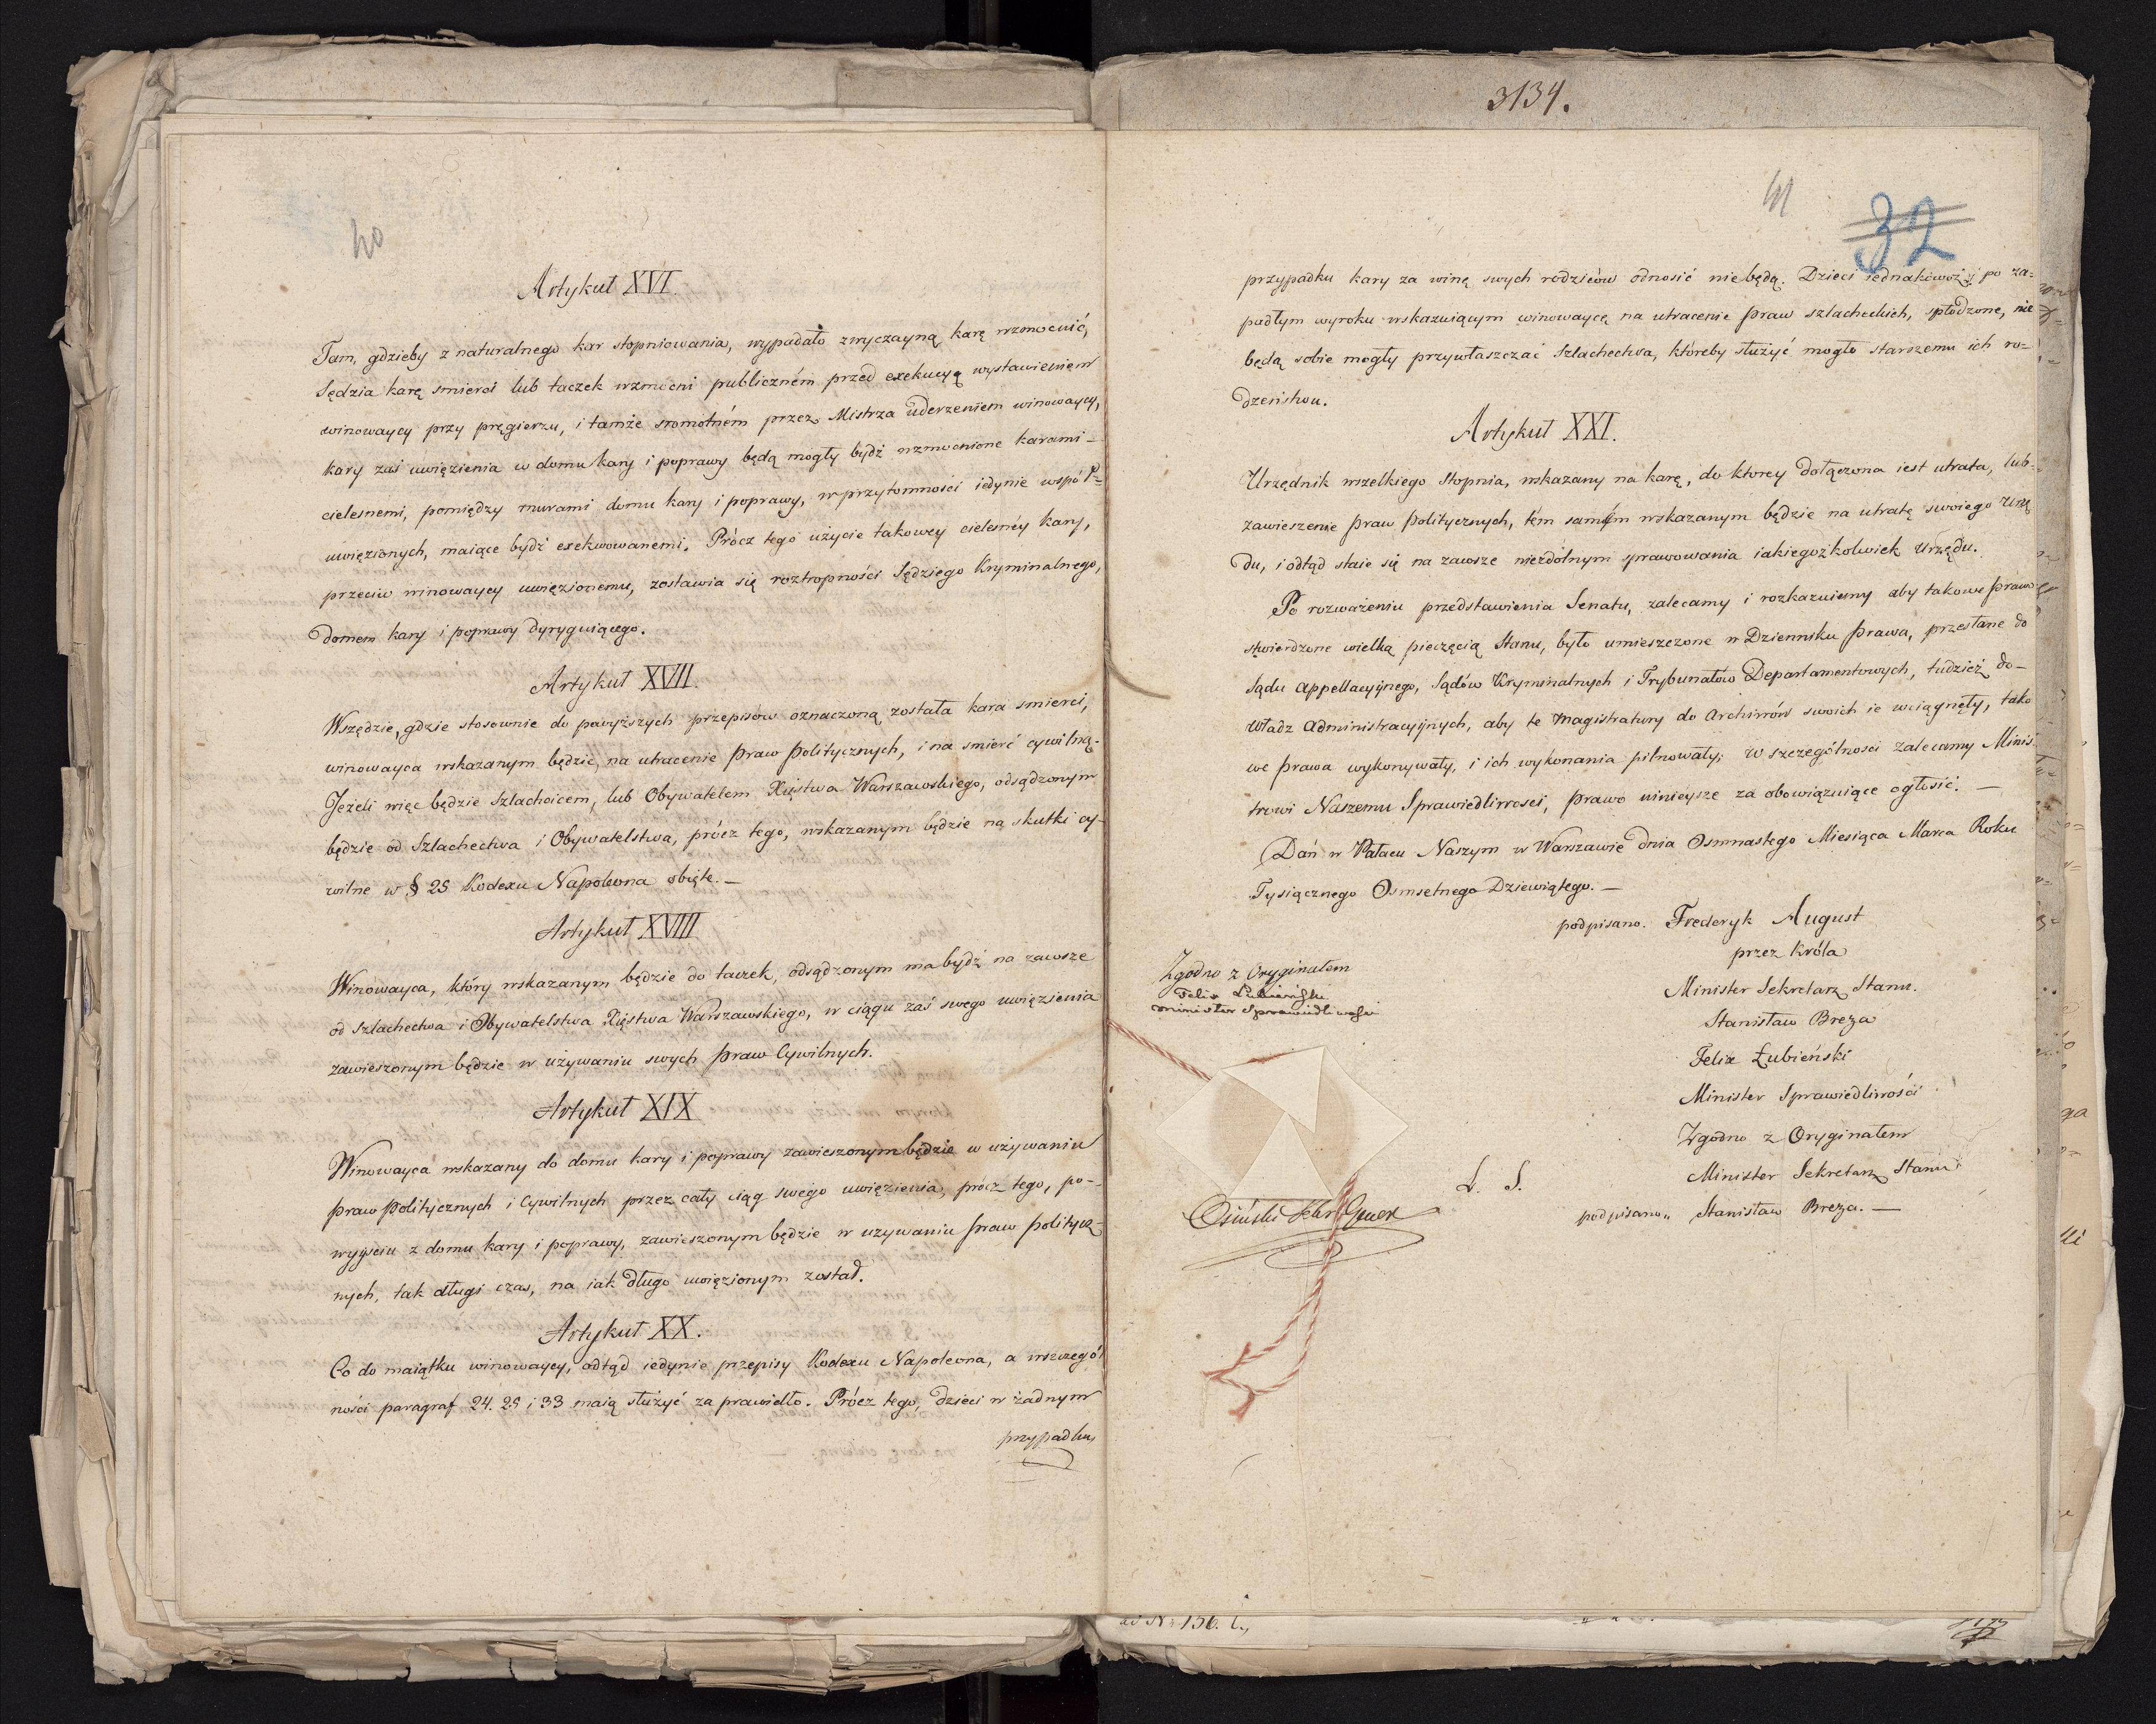 40
Artykuł XVI.
Tam, gdzieby z naturalnego kar stopniowania, wypadało zwyczayną karę wzmocnić,
Sędzia karę smierci lub taczek wzmocni publiczném przed exekucyą wystawieniem
winowaycy przy pręgierzu, i tamże sromotném przez Mistrza uderzeniem winowaycy,
kary zaś uwięzienia w domu kary i poprawy będą mogły bydź wzmocnione karami
cielesnemi, pomiędzy murami domu kary i poprawy, w przytomności iedynie współ=
uwięzionych, maiące bydź exekwowanemi. Prócz tego użycie takowey cielesnéy kary,
przeciw winowaycy uwięzionemu, zostawia się roztropności Sędziego Kryminalnego,
domem kary i poprawy dyryguiącego.
Artykuł XVII.
Wszędzie, gdzie stosownie do powyższych przepisów oznaczoną została kara smierci,
winowayca wskazanym będzie, na utracenie praw politycznych, i na smierć cywilną.
Jeżeli więc będzie Szlachcicem, lub Obywatelem Xięstwa Warszawskiego, odsądzonym
będzie od Szlachectwa i Obywatelstwa, prócz tego, wskazanym będzie na skutki cy-
wilne w § 25 Kodexu Napoleona obięte. —
Artykuł XVIII
Winowayca, który wskazanym będzie do taczek, odsądzonym ma bydź na zawsze
od Szlachectwa i Obywatelstwa Xięstwa Warszawskiego, w ciągu zaś swego uwięzienia
zawieszonym będzie w używaniu swych praw Cywilnych.
Artykuł XIX
Winowayca wskazany do domu kary i poprawy zawieszonym będzie w używaniu
praw politycznych i Cywilnych przez cały ciąg swego uwięzienia, prócz tego, po-
wyyściu z domu kary i poprawy, zawieszonym będzie w używaniu praw politycz-
nych, tak długi czas, na iak długo uwięzionym został.
Artykuł XX.
Co do maiątku winowaycy, odtąd iedynie przepisy Kodexu Napoleona, a wszczegól
ności paragraf 24. 25 i 33 maią służyć za prawidło. Prócz tego, dzieci w żadnym
przypadku
3134.
41
32
przypadku kary za winę swych rodziców odnosić niebędą. Dzieci iednakowoż, po za=
padłym wyroku wskazuiącym winowaycę na utracenie praw szlacheckich, spłodzone, nie
będą sobie mogły przywłaszczać Szlachectwa, któreby służyć mogło starszemu ich ro-
dzeństwu.
Artykuł XXI.
Urzędnik wszelkiego Stopnia, wskazany na karę, do ktorey dołączona iest utrata, lub=
zawieszenie praw politycznych, tém samém wskazanym będzie na utratę swoiego urzę
du, i odtąd staie się na zawsze niezdolnym sprawowania iakiegożkolwiek Urzędu.
Po rozważeniu przedstawienia Senatu, zalecamy i rozkazuiemy aby takowe prawo
stwierdzone wielką pieczęcią Stanu, było umieszczone w Dzienniku Prawa, przesłane do
Sądu Appellacyinego, Sądów Kryminalnych i Trybunałów Departamentowych, tudzież do-
władz Administracyinych, aby te Magistratury do Archiwów swoich ie wciągnęły, tako
we prawa wykonywały, i ich wykonania pilnowały; w szczególności zalecamy Minis
trowi Naszemu Sprawiedliwości, prawo ninieysze za obowiązuiące ogłosić. —
Dań w Pałacu Naszym w Warszawie dnia Osmnastego Miesiąca Marca Roku
Tysiącznego Osmsetnego Dziewiątego. —
podpisano. Frederyk August
przez Króla
Minister Sekretarz Stanu.
Stanisław Breza
Felix Łubieński
Minister Sprawiedliwości
Zgodno z Oryginałem
Minister Sekretarz Stanu
podpisano„ Stanisław Breza. —
Zgodno z Oryginałem
Felix Łubieński
minister Sprawiedliwości
L. S.
Osiński Sekr Gener
ad No 156. l.,